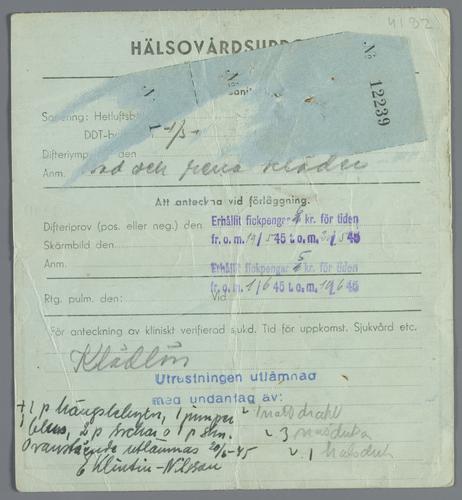 4192
HÄLSOVÅRDSUPP
No 12239
Sanering: Hetluftsb
DDT-b
1/5
Difteriymp den
Anm. bad och rena kläder
Att anteckna vid förläggning.
Difteriprov (pos. eller neg.) den Erhållit fickpengar kr. för tiden
Skärmbild den fr. o. m. 14/5 45 t. o. m. 31/5 45
Anm. Erhållit fickpengar 5 kr. för tiden
fr. o. m. 1/6 45 t. o. m. 10/6 45
Rtg. pulm. den: Vid
För anteckning av kliniskt verifierad sjukd. Tid för uppkomst. Sjukvård etc.
Klädlön
Utrustningen utlämnad
med undantag av:
+ 1 p hängslelinnen, 1 jumper
1 blus, 2 p trosor o p str.
3
Ovanstående utlämnas 20/6-45
1 halsduk
E Klintin-Nilsson